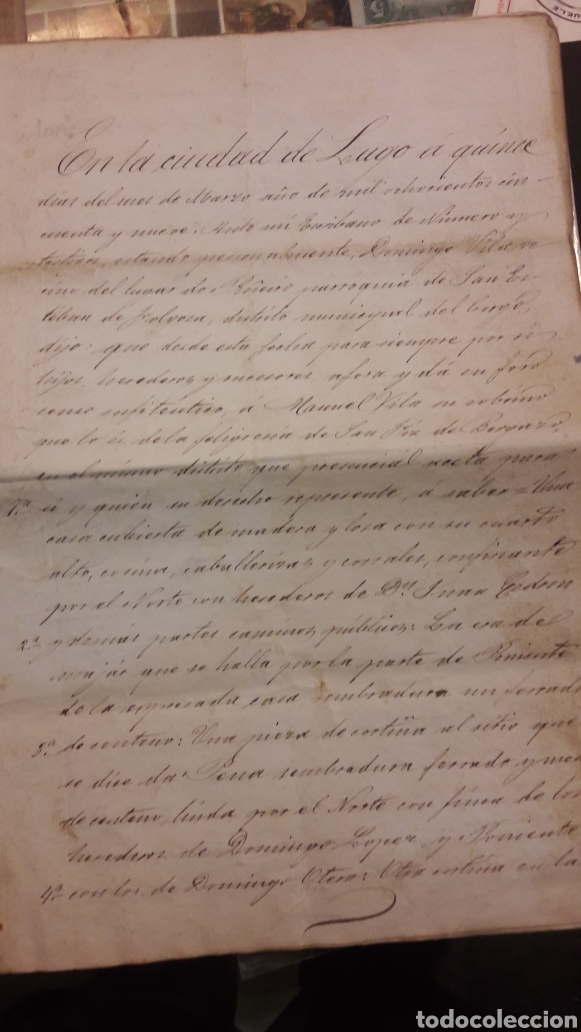 En la ciudad de Lugo á quince
dias del mes de Marzo año de mil ochocientos cin-
cuenta y nueve: Ante mi Escribano de Número y
testigos, estando personalmente, Domingo Vila ve-
cino del lugar do Riveiro parroquia de San Es-
teban de Folgosa, distrito municipal del Corgo,
dijo: que desde esta fecha para siempre por sí
hijos, herederos y sucesores, afora y dá en foro
como enfiteutico, á Manuel Vila su sobrino
que lo es de la feligresia de San Fiz de
en el mismo distrito que presencial aceta para
1.ª sí y quien su derecho represente, á saber = Una
casa cubierta de madera y losa con su cuarto
alto, cocina, caballerizas y corrales, confinante
por el Norte con herederos de Dn. Juan
2.ª y demás partes caminos públicos: La era de
majar que se halla por la parte de Poniente
de la espresada casa, sembradura un ferrado
3.ª de centeno: Una pieza de cortiña al sitio que
se dice da Pena sembradura ferrado y med
de centeno, linda por el Norte con finca de los
herederos de Domingo Lopez y Poniente
4.ª con los de Domingo Otero: Otra cortiña en la
todocoleccion